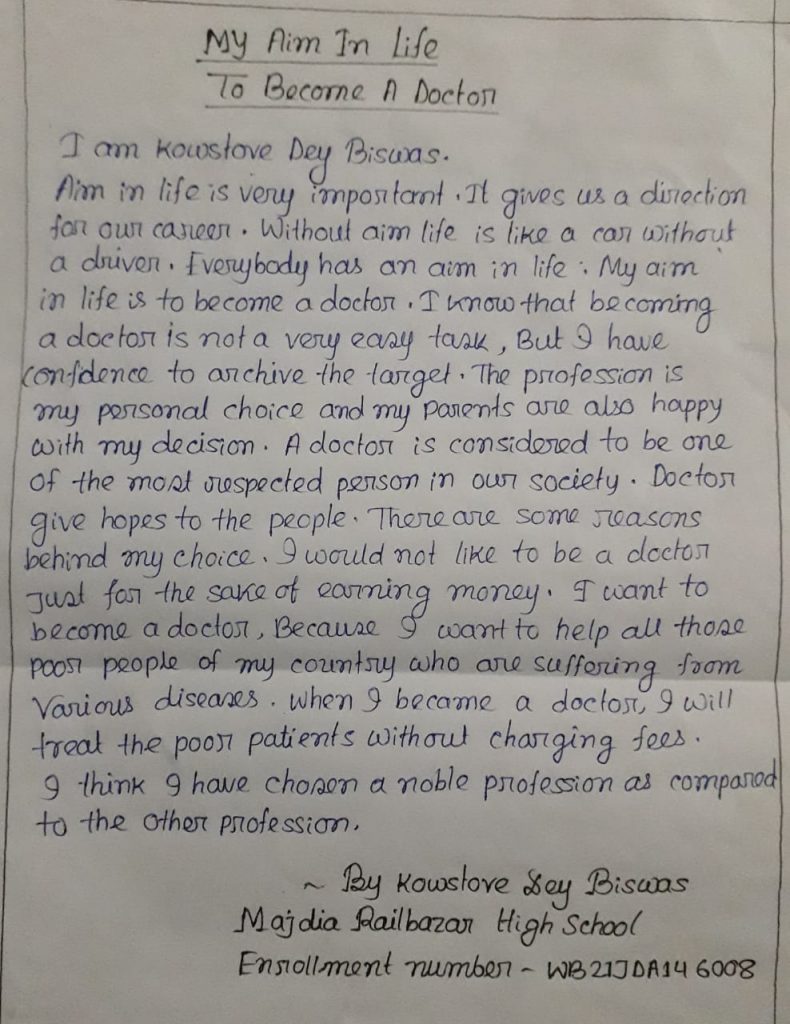 My Aim In Life
To Become A Doctor
I am Kowstove Dey Biswas.
Aim in life is very important. It gives us a direction
for our career. Without aim life is like a car without
a driver. Everybody has an aim in life. My aim
in life is to become a doctor. I know that becoming
a doctor is not a very easy task, But I have
confidence to archive the target. The profession is
my personal choice and my parents are also happy
with my decision. A doctor is considered to be one
of the most respected person in our society. Doctor
give hopes to the people. There are some reasons
behind my choice. I would not like to be a doctor
Just for the sake of earning money. I want to
become a doctor, Because I want to help all those
poor people of my country who are suffering from
Various diseases. When I became a doctor, I will
treat the poor patients without charging fees.
I think I have chosen a noble profession as compared
to the other profession.
~ By Kowstove Dey Biswas
Majdia Railbazar High School
Enrollment number - WB21JDA146008